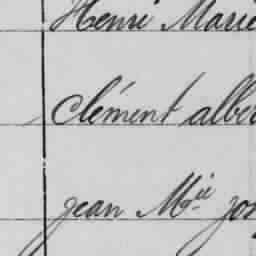 Henri Marie
Clément alber
jean Mie jos